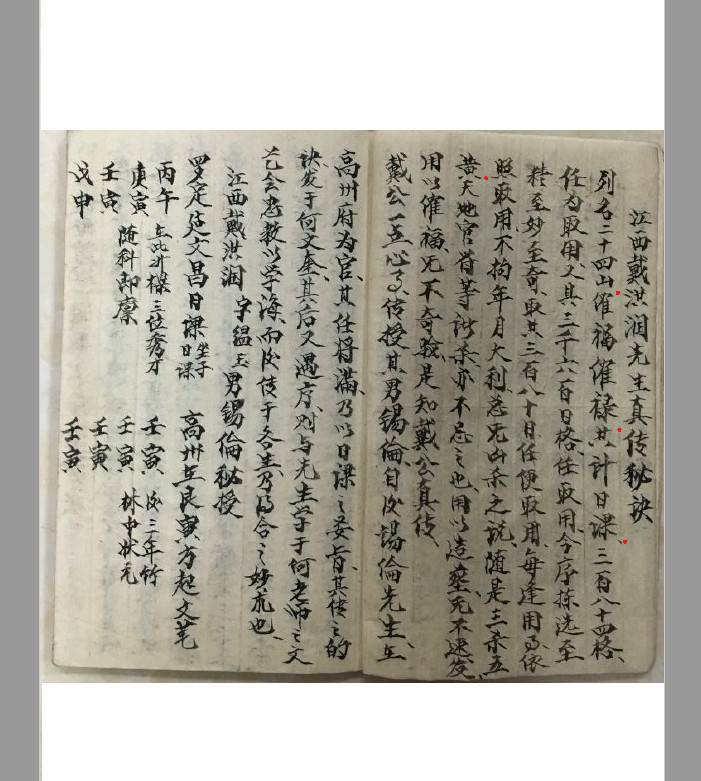 江西戴洪润先生真传秘诀
列名二十四山催福催禄共计日课三百八十四格、
任为取用又其三千六百日格、任取用今序拣选至
精至妙至奇、取其三百八十日任便取用、每逢用事依
照取用不拘年月大利总无凶杀之说、随是三杀五
黄天地官符等诸杀亦不忌之也、用以造塟无不速发、
用以催福无不奇验、是知戴公真传、
戴公一点心事传授其男锡倫自后锡倫先生在
高州府为官、其任将滿、乃以日课之妾旨、其传之的
诀发于何文奎、其后又遇序则与先生学于何老师之文
艺会悉数以学海、而后传于各生乃为合之妙朮也、
江西戴洪润 字韫玉 男锡倫秘授
罗定廷文昌日课 坐子日课 高州在艮寅方起文笔
丙午 壬寅
庚寅 壬寅
壬寅 壬寅
戊申 壬寅
在此升樑三位秀才
随科即廪
后三年竹
林中状元